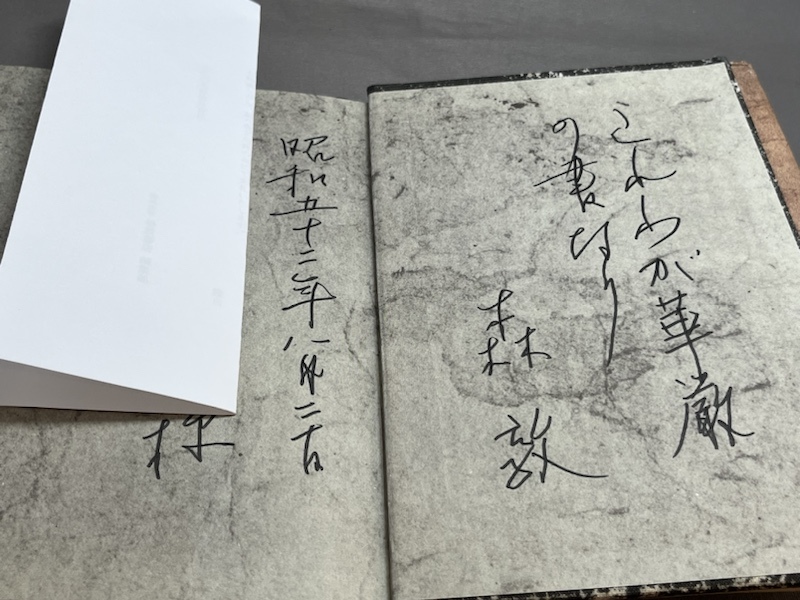 これわが華厳
の書なり
森 敦
昭和五十二年八月二十日
様